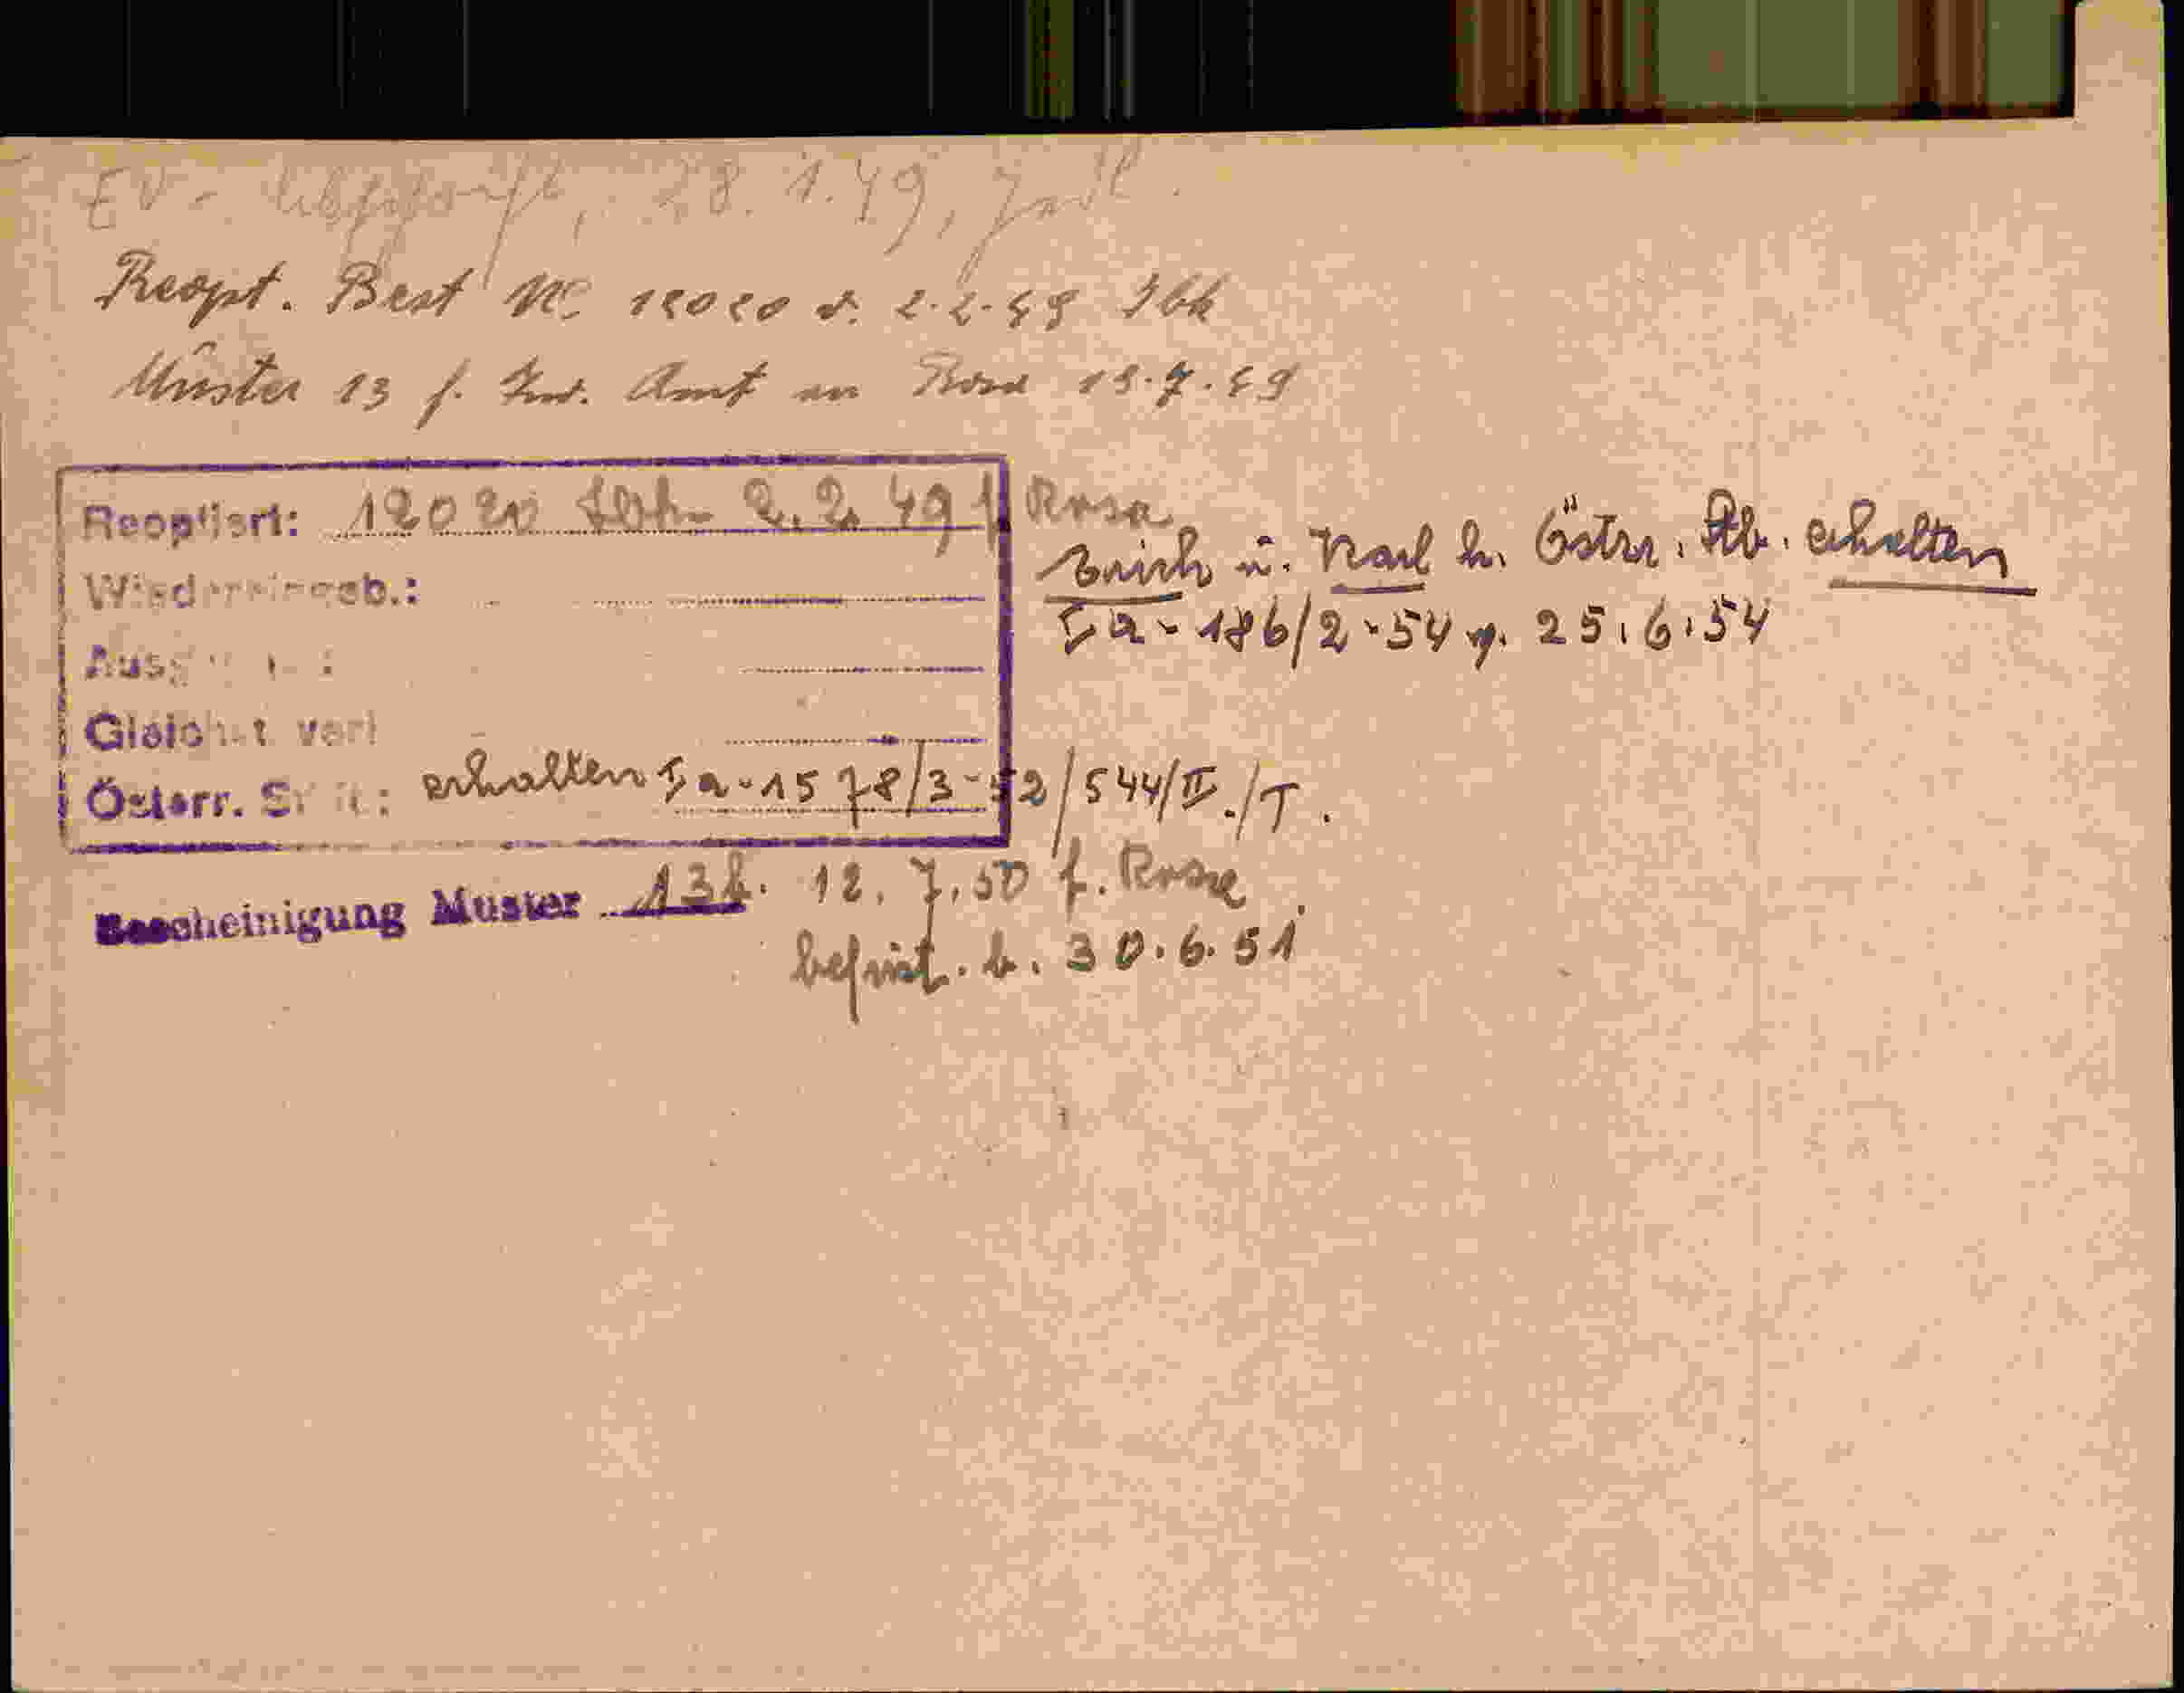 EV - Abschrift, 28. 1. 49,
Reopt. Best No 12020 v. 2.2.49 Ibk
Muster 13 f. Amt an Rosa 13.7.49
Reoptiert: 12020 Ibk 2.2.49 f Rosa
Wiedereingeb.:
Erich u. Karl h. Östrr. Stb. erhalten
Ia-186/2-54 v. 25.6.54
Gleichst. verl
Österr. St.: erhalten Ia-1578/3-52/544/II./T.
Bescheinigung Muster 13b. 12.7.50 f. Rosa
befrist. b. 30.6.51